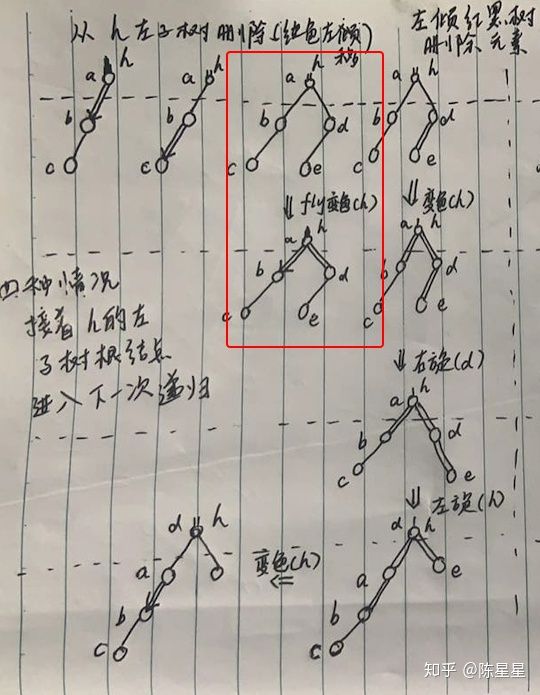 从 h 左子树删除(红色左倾移)
左倾红黑树
删除元素
a h
b
c
a h
b
c
a h
b d
c e
a h
b d
c e
⇓ fly变色(h)
⇓ 变色(h)
a h
b d
c e
a h
b d
c e
四种情况
接着h的左
子树根结点
进入下一次递归
⇓ 右旋(d)
a h
b d
c e
⇓ 左旋(h)
d h
a e
b
c
变色(h)
⇐
d h
a
b
c
知乎 @陈星星